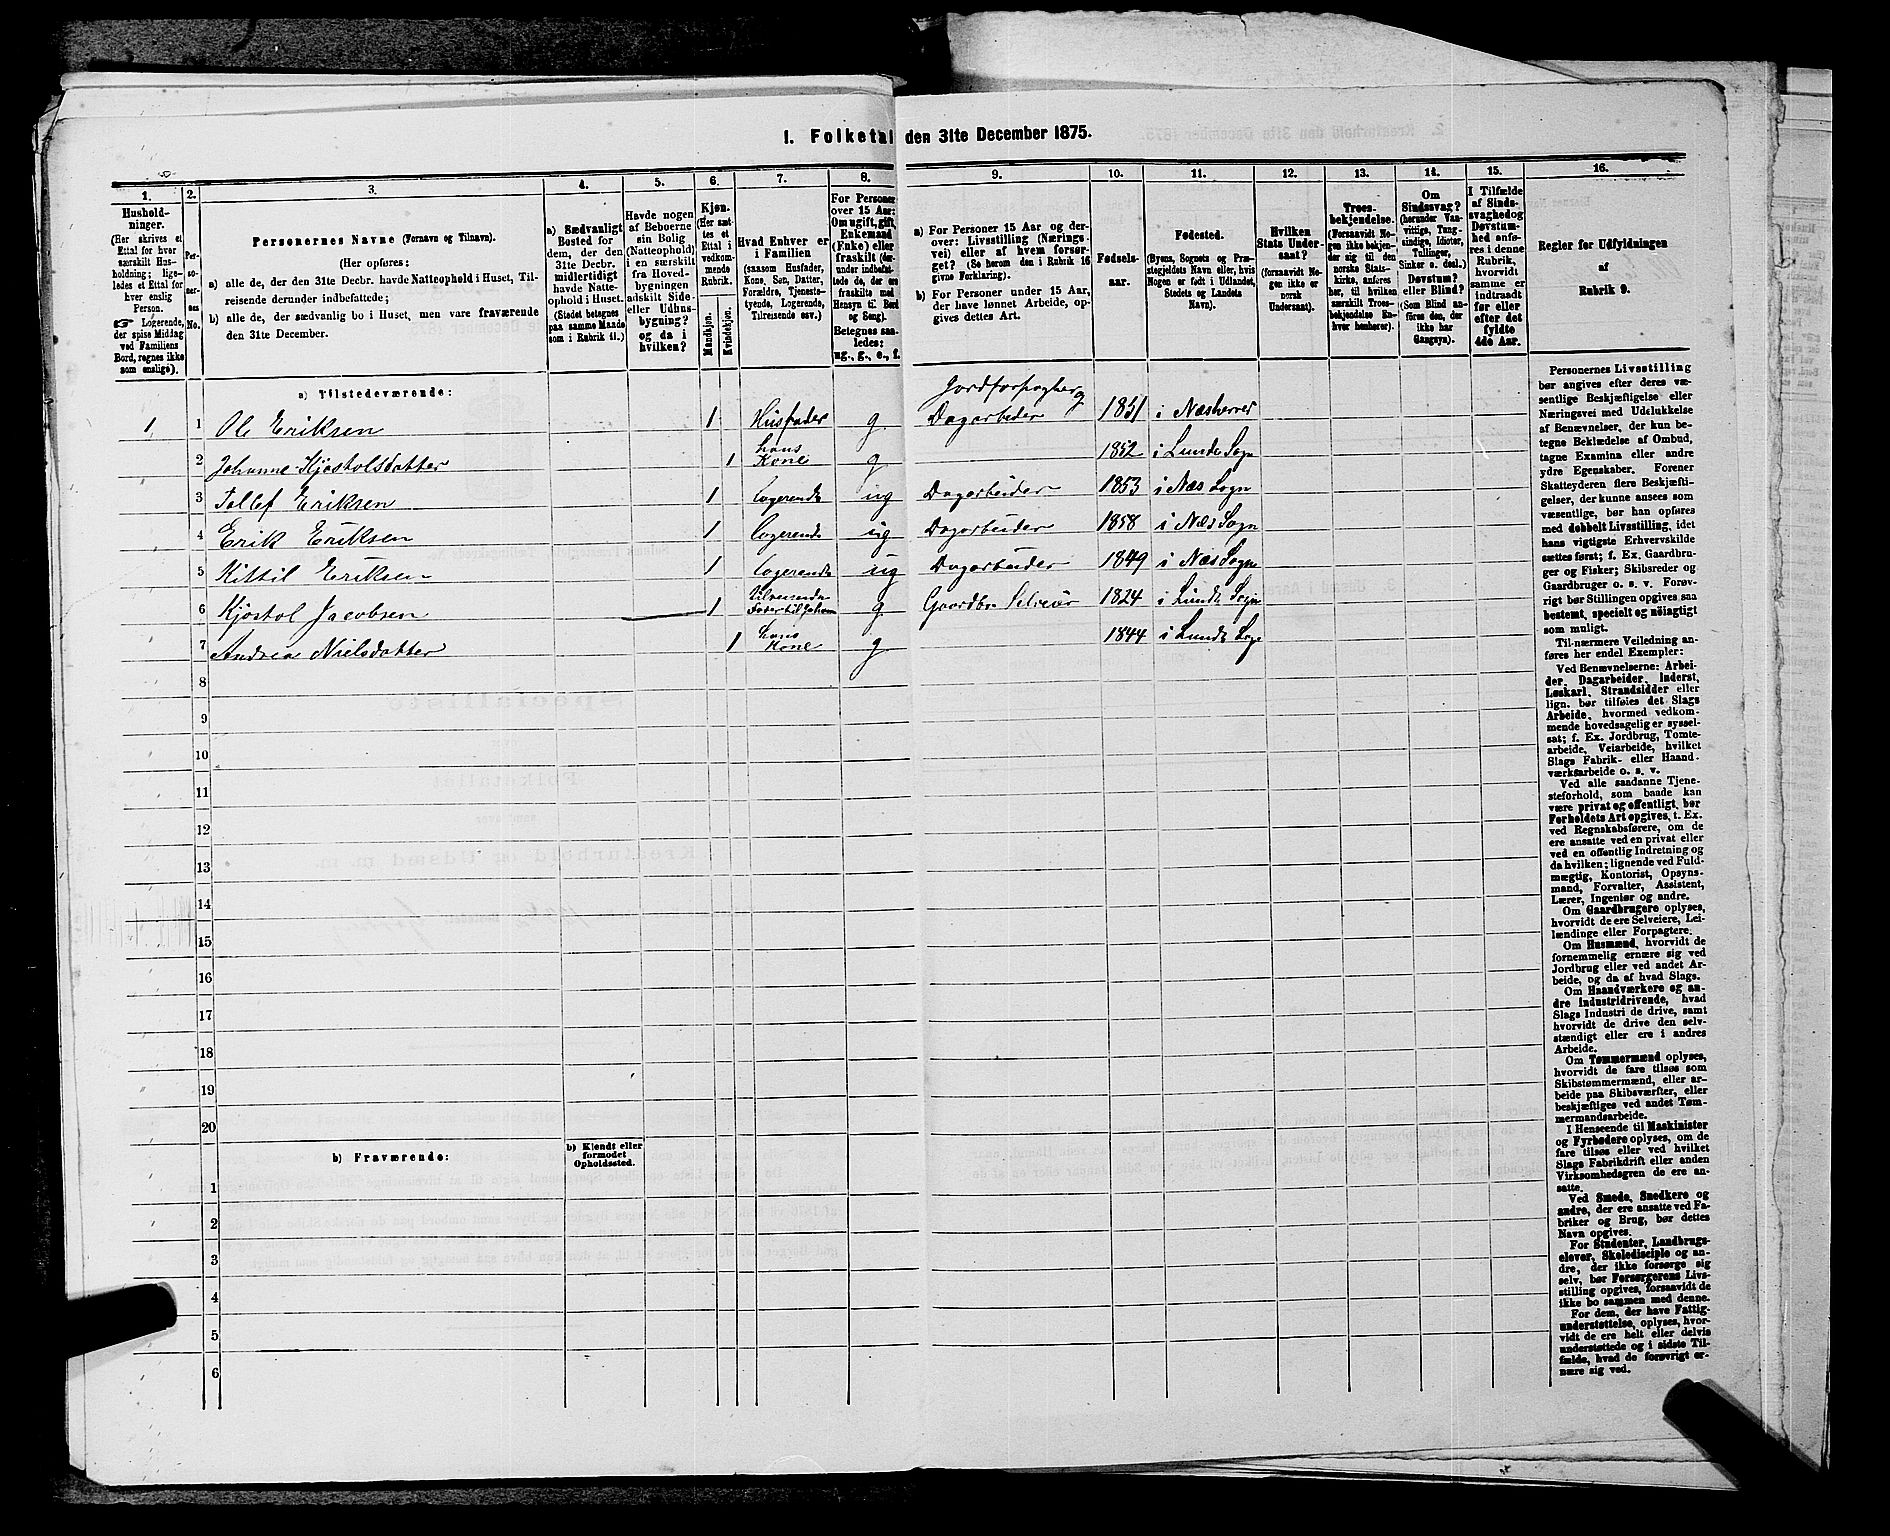 1. Folketal den 31te December 1875.
1.
2.
3.
4.
5.
6.
7.
8.
9.
10.
11.
12.
13.
14.
15.
16.
Hushold-
ninger.
(Her skrives et
Ettal for hver
særskilt Hus-
holdning; lige-
ledes et Ettal for
hver enslig
Person.
☞ Logerende,
der spise Middag
ved Familiens
Bord, regnes ikke
som enslige).
Per-
so-
ner-
nes
No.
Personernes Navne (Fornavn og Tilnavn).
(Her opføres:
a) alle de, der den 31te Decbr. havde Natteophold i Huset, Til-
reisende derunder indbefattede;
b) alle de, der sædvanlig bo i Huset, men vare fraværende
den 31te December.
a) Sædvanligt
Bosted for
dem, der den
31te Decbr.
midlertidigt
havde Natte-
ophold i Huset.
(Stedet betegnes
paa samme Maade
som i Rubrik 11.)
Havde nogen
af Beboerne
sin Bolig
(Natteophold)
i en særskilt
fra Hoved-
bygningen
adskilt Side-
eller Udhus-
bygning?
og da i
hvilken?
Kjøn.
(Her sæt-
tes et
Ettal i
vedkom-
mende
Rubrik.
Mandkjøn.
Kvindekjøn.
Hvad Enhver er
i Familien
(saasom Husfader,
Kone, Søn, Datter,
Forældre, Tjeneste-
tyende, Logerende,
Tilreisende osv.)
For Personer
over 15 Aar:
Om ugift, gift,
Enkemand
(Enke) eller
fraskilt (der-
under indbefat-
tede de, der ere
fraskilte med
Hensyn til Bord
og Seng).
Betegnes saa-
ledes:
ug., g., e., f.
a) For Personer 15 Aar og der-
over: Livsstilling (Nærings-
vei) eller af hvem forsør-
get? (Se herom den i Rubrik 16
givne Forklaring).
b) For Personer under 15 Aar,
der have lønnet Arbeide, op-
gives dettes Art.
Fødsels-
aar.
Fødested.
(Byens, Sognets og Præ-
stegjeldets Navn eller, hvis
Nogen er født i Udlandet,
Stedets og Landets
Navn).
Hvilken
Stats Under-
saat?
(forsaavidt No-
gen ikke er
norsk
Undersaat).
Troes-
bekjendelse.
(Forsaavidt No-
gen ikke bekjen-
der sig til den
norske Stats-
kirke, anføres
her, til hvilken
særskilt Troes-
bekjendelse En-
hver henhører).
Om
Sindssvag?
(herunder Van-
vittige, Tung-
sindige, Idioter,
Tullinger,
Sinker o. desl.)
Døvstum?
eller Blind?
(Som Blind an-
føres den, der
ikke har
Gangsyn).
I Tilfælde
af Sinds-
svaghed og
Døvstum-
hed anfø-
res i denne
Rubrik,
hvorvidt
samme er
indtraadt
før eller
efter det
fyldte
4de Aar.
Regler for Udfyldningen
af
Rubrik 9.
a) Tilstedeværende:
Jordforpagter og
1 1 Ole Eriksen 1 Husfader g Dagarbeider 1851 i Næsherred
2 Johanne Kjøstolsdatter 1 hans Kone g 1852 i Lunde Sogn
3 Tollef Eriksen 1 logerende ug Dagarbeider 1853 i Næs Sogn
4 Erik Eriksen 1 logerende ug Dagarbeider 1858 i Næs Sogn
5 Kittil Eriksen 1 logerende ug Dagarbeider 1849 i Næs Sogn
6 Kjøstol Jacobsen 1 g Gaardbr Selveier 1824 i Lunde Sogn
7 Andrea Nielsdatter 1 hans Kone g 1844 i Lunde Sogn
8
9
10
11
12
13
14
15
16
17
18
19
20
b) Fraværende:
b) Kjendt eller
formodet
Opholdssted.
1
2
3
4
5
6
Personernes Livsstilling
bør angives efter deres væ-
sentlige Beskjæftigelse eller
Næringsvei med Udelukkelse
af Benævnelser, der kun be-
tegne Beklædelse af Ombud,
tagne Examina eller andre
ydre Egenskaber. Forener
Skatteyderen flere Beskjæfti-
gelser, der kunne ansees som
væsentlige, bør han opføres
med dobbelt Livsstilling, idet
hans vigtigste Erhvervskilde
sættes først; f. Ex. Gaardbru-
ger og Fisker; Skibsreder og
Gaardbruger o. s. v. Forøv-
rigt bør Stillingen opgives saa
bestemt, specielt og nøiagtigt
som muligt.
Til nærmere Veiledning an-
føres her endel Exempler:
Ved Benævnelserne: Arbei-
der, Dagarbeider, Inderst,
Løskarl, Strandsidder eller
lign. bør tilføies det Slags
Arbeide, hvormed vedkom-
mende hovedsagelig er syssel-
sat; f. Ex. Jordbrug, Tomte-
arbeide, Veiarbeide, hvilket
Slags Fabrik- eller Haand-
værksarbeide o. s. v.
Ved alle saadanne Tjene-
steforhold, som baade kan
være privat og offentligt, bør
Forholdets Art opgives, f. Ex.
ved Regnskabsførere, om de
ere ansatte ved en privat eller
ved en offentlig Indretning og
da hvilken; lignende ved Fuld-
mægtig, Kontorist, Opsyns-
mand, Forvalter, Assistent,
Lærer, Ingeniør og andre.
Om Gaardbrugere oplyses,
hvorvidt de ere Selveiere, Lei-
lændinge eller Forpagtere.
Om Husmænd, hvorvidt de
fornemmelig ernære sig ved
Jordbrug eller ved andet Ar-
beide, og da af hvad Slags.
Om Haandværkere og an-
dre Industridrivende, hvad
Slags Industri de drive, samt
hvorvidt de drive den selv-
stændigt eller ere i andres
Arbeide.
Om Tømmermænd oplyses,
hvorvidt de fare tilsøs som
Skibstømmermænd, eller ar-
beide paa Skibsværfter, eller
beskjæftiges ved andet Tøm-
mermandsarbeide.
I Henseende til Maskinister
og Fyrbødere oplyses, om de
fare tilsøs eller ved hvilket
Slags Fabrikdrift eller anden
Virksomhedsgren de ere an-
satte.
Ved Smede, Snedkere og
andre, der ere ansatte ved Fa-
briker og Brug, bør dettes
Navn opgives.
For Studenter, Landbrugs-
elever, Skoledisciple og an-
dre, der ikke forsørge sig
selv, bør Forsørgerens Livs-
stilling opgives, forsaavidt de
ikke bo sammen med denne.
For dem, der have Fattig-
understøttelse, oplyses, hvor-
vidt de ere helt eller delvis
understøttede og i sidste Til-
fælde, hvad de forøvrigt er-
nære sig ved.